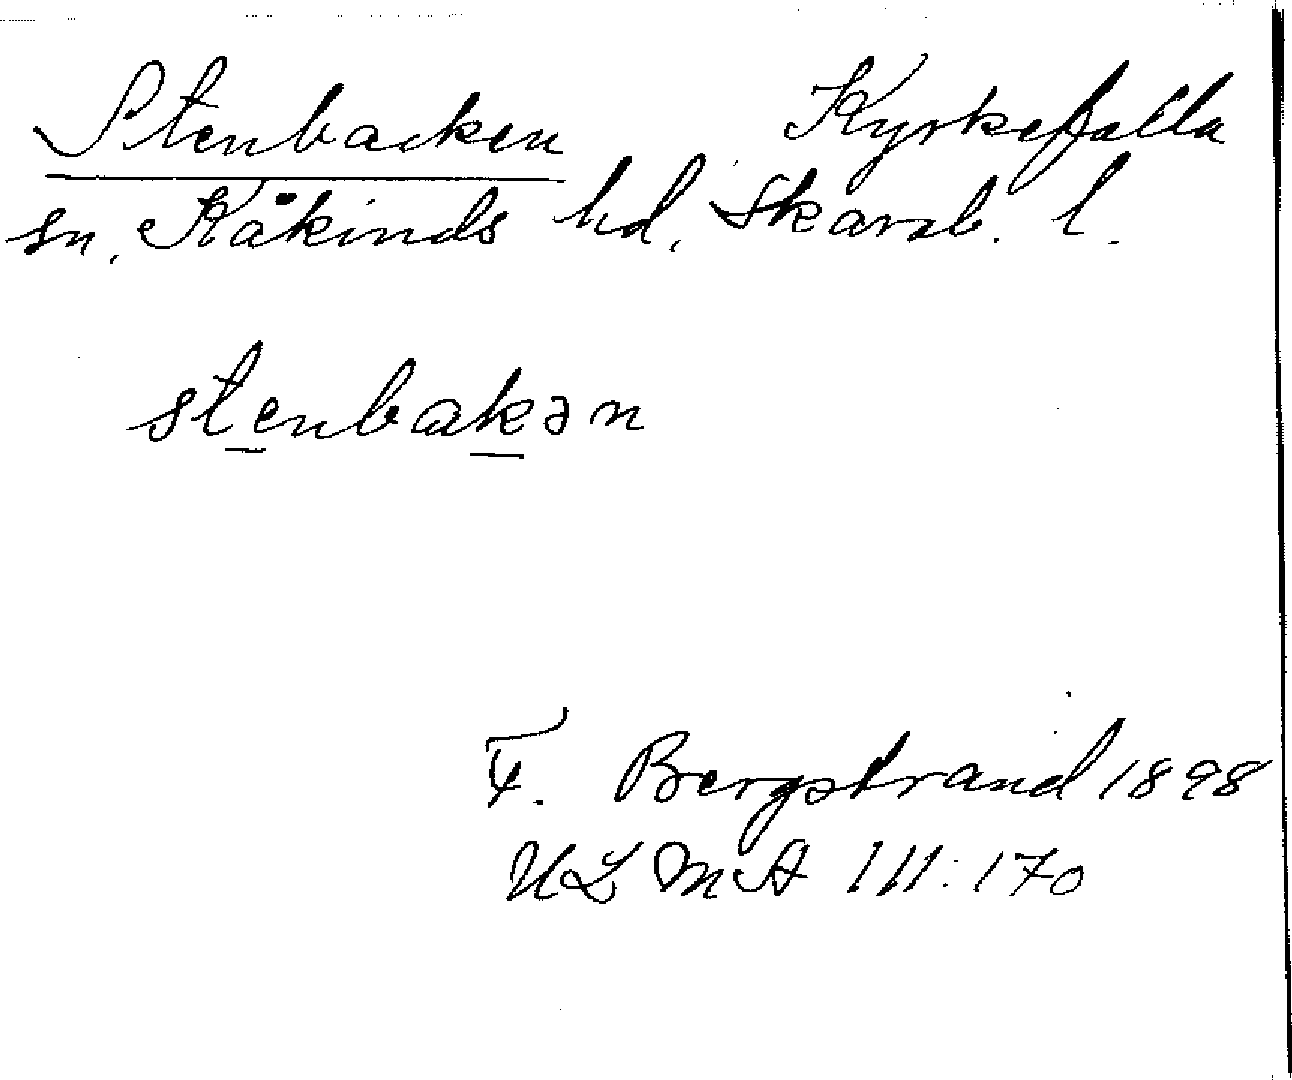 Stenbacken Kyrkefalla
sn, Kåkinds hd, Skarab. l.
stenbakən
F. Bergstrand 1898
ULMA 111:170